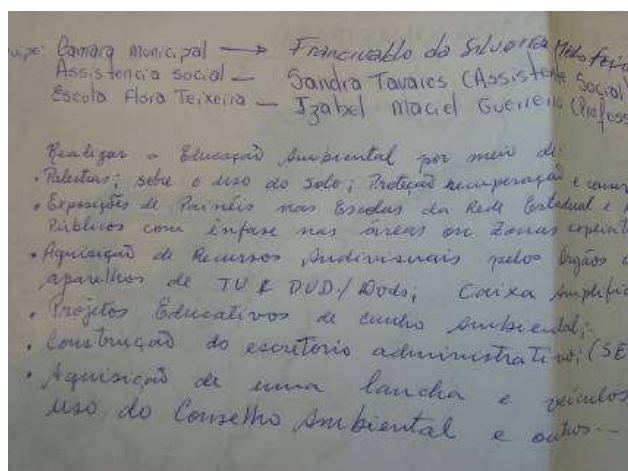 uipe: Camara municipal → Francivaldo da Silva
Assistencia social – Sandra Tavares (Assistente Social)
Escola Flora Teixeira – Izabel Maciel Guerreiro (Profess
Realizar a Educação Ambiental por meio de:
• Palestras; sobre o uso do solo; Proteção recuperação e
• Exposições de Painéis nas Escolas da Rede Estadual e
Públicos com ênfase nas áreas ou Zonas
• Aquisição de Recursos Audivisuais pelos Órgãos
aparelhos de TV e DVD/ Dvds; Caixa Amplific
• Projetos Educativos de cunho Ambiental;
• Construção do escritorio administrativo; (SE
• Aquisição de uma lancha e veículos
uso do Conselho Ambiental e outros...